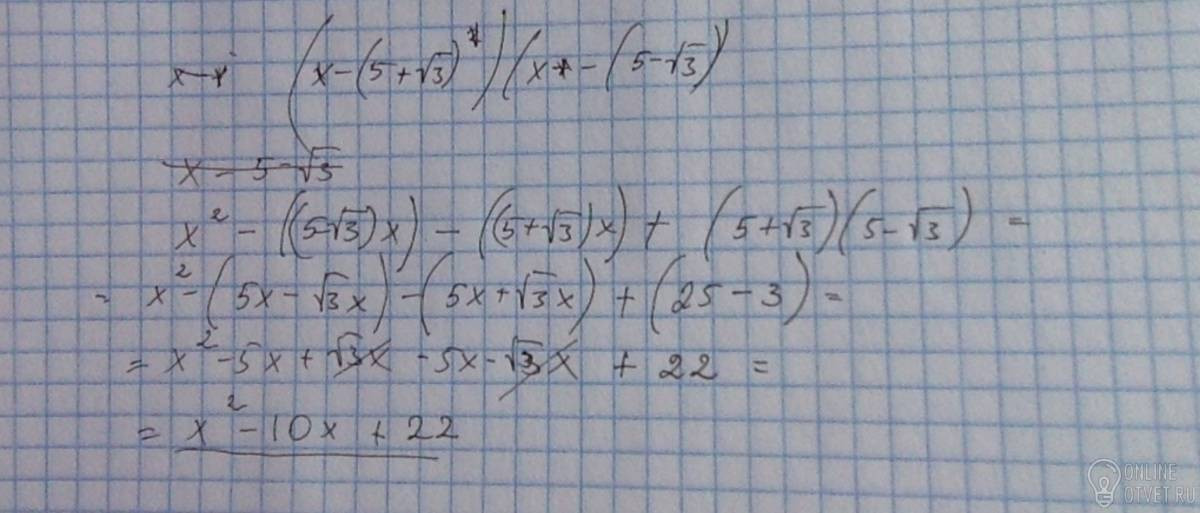 x-x (x-(5+√3))(x-(5-√3))
x-5-√3
x²-((5-√3)x)-((5+√3)x)+(5+√3)(5-√3)=
=x²-(5x-√3x)-(5x+√3x)+(25-3)=
=x²-5x+√3x-5x-√3x+22=
=x²-10x+22
ONLINE
OTVET.RU